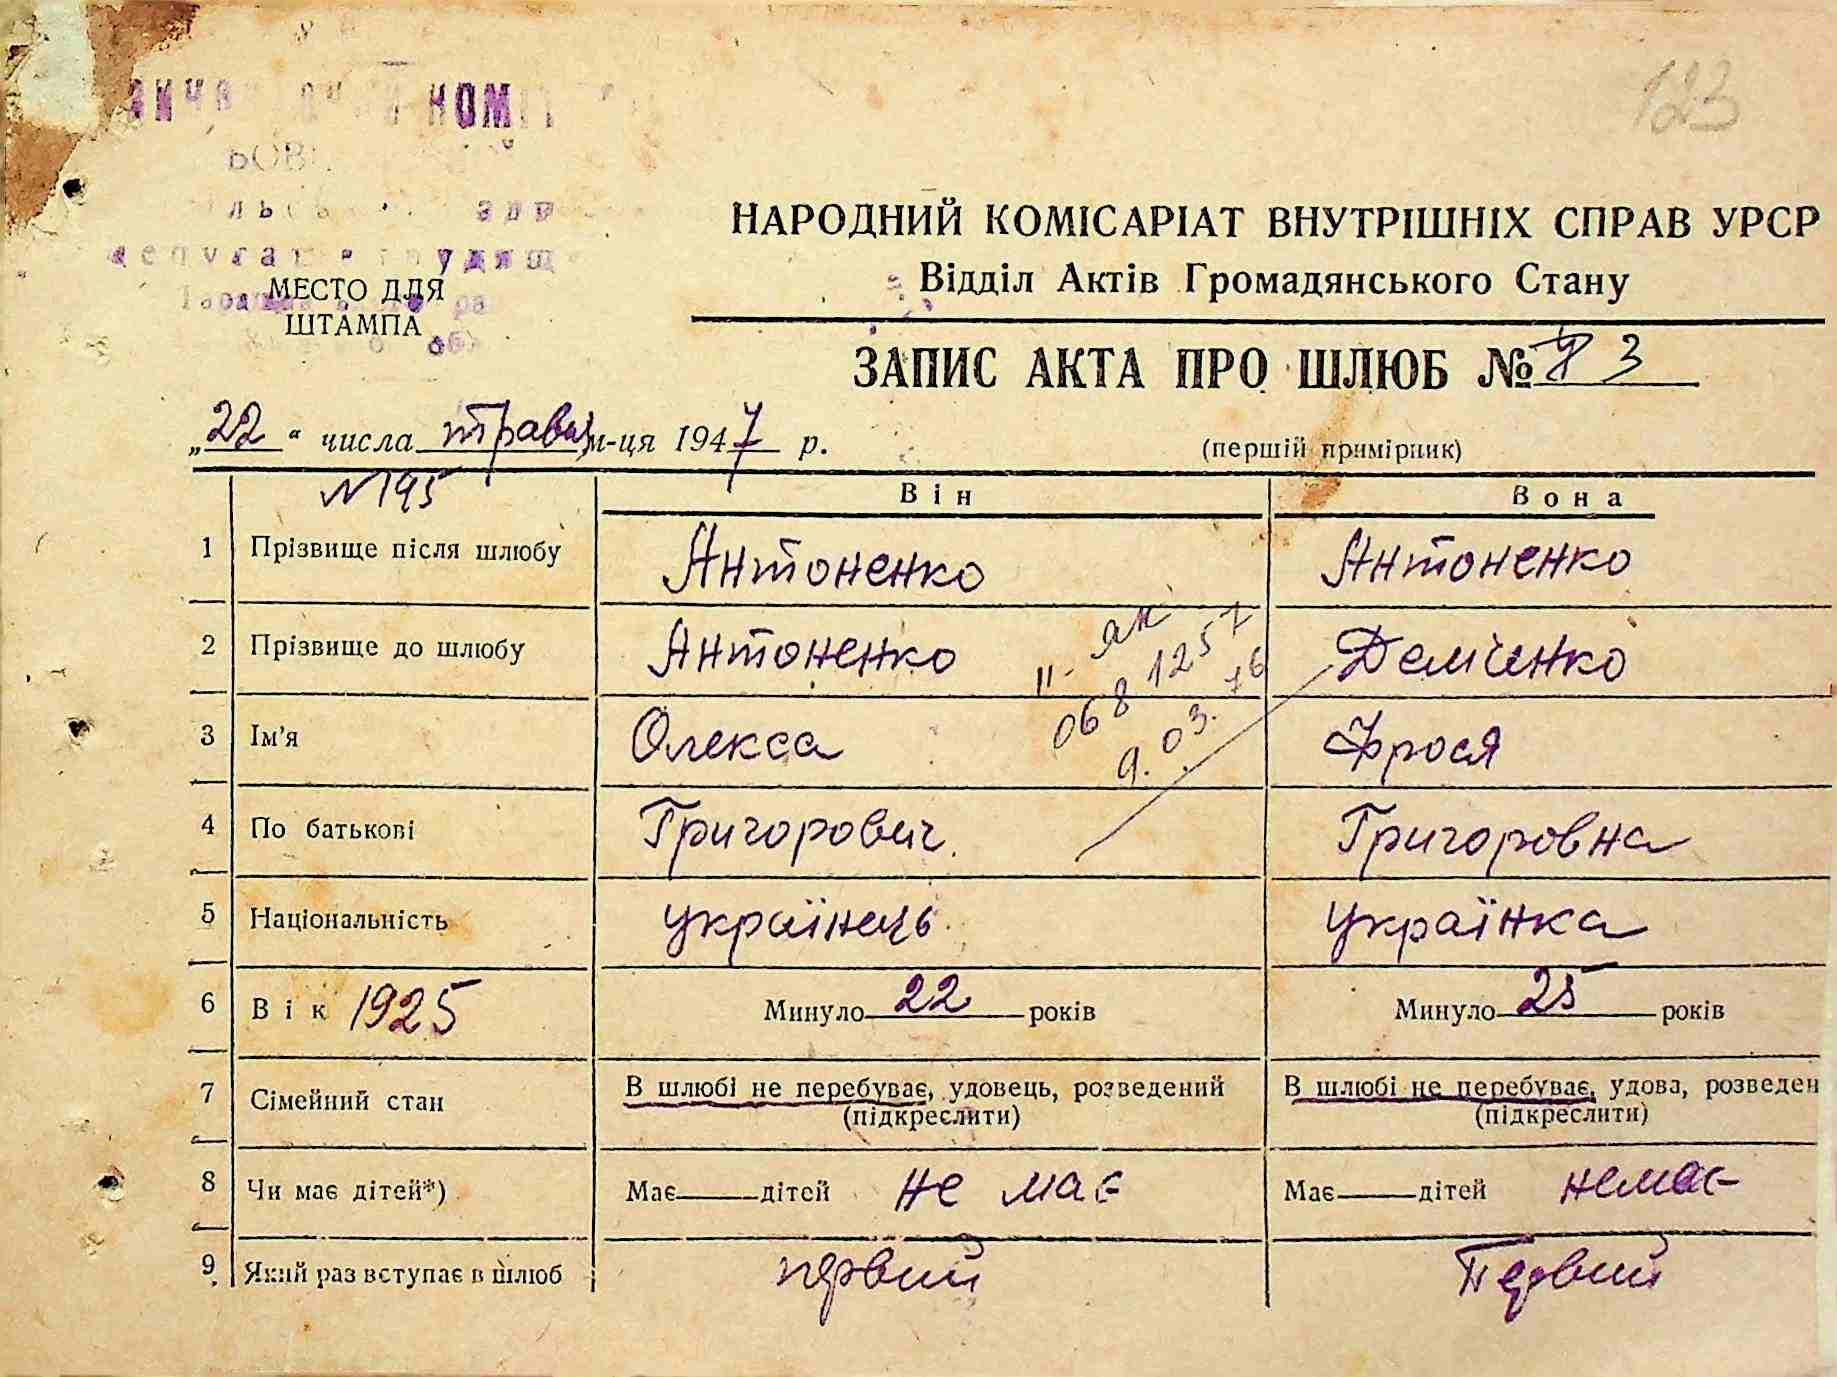 123
НАРОДНИЙ КОМІСАРІАТ ВНУТРІШНІХ СПРАВ УРСР
Відділ Актів Громадянського Стану
МЕСТО ДЛЯ
ШТАМПА
ЗАПИС АКТА ПРО ШЛЮБ № 3
„22“ числа травня м-ця 1947 р.
(першій примірник)
N 195
Він Вона
1 Прізвище після шлюбу Антоненко Антоненко
2 Прізвище до шлюбу Антоненко Демченко
II-АК
0681257
9.03.76
3 Ім'я Олекса Фрося
4 По батькові Григорович Григоровна
5 Національність українець українка
6 Вік 1925 Минуло 22 років Минуло 25 років
7 Сімейний стан В шлюбі не перебуває, удовець, розведений В шлюбі не перебуває, удова, розведен
(підкреслити) (підкреслити)
8 Чи має дітей*) Має дітей не має Має дітей немає
9 Який раз вступає в шлюб первий Первий